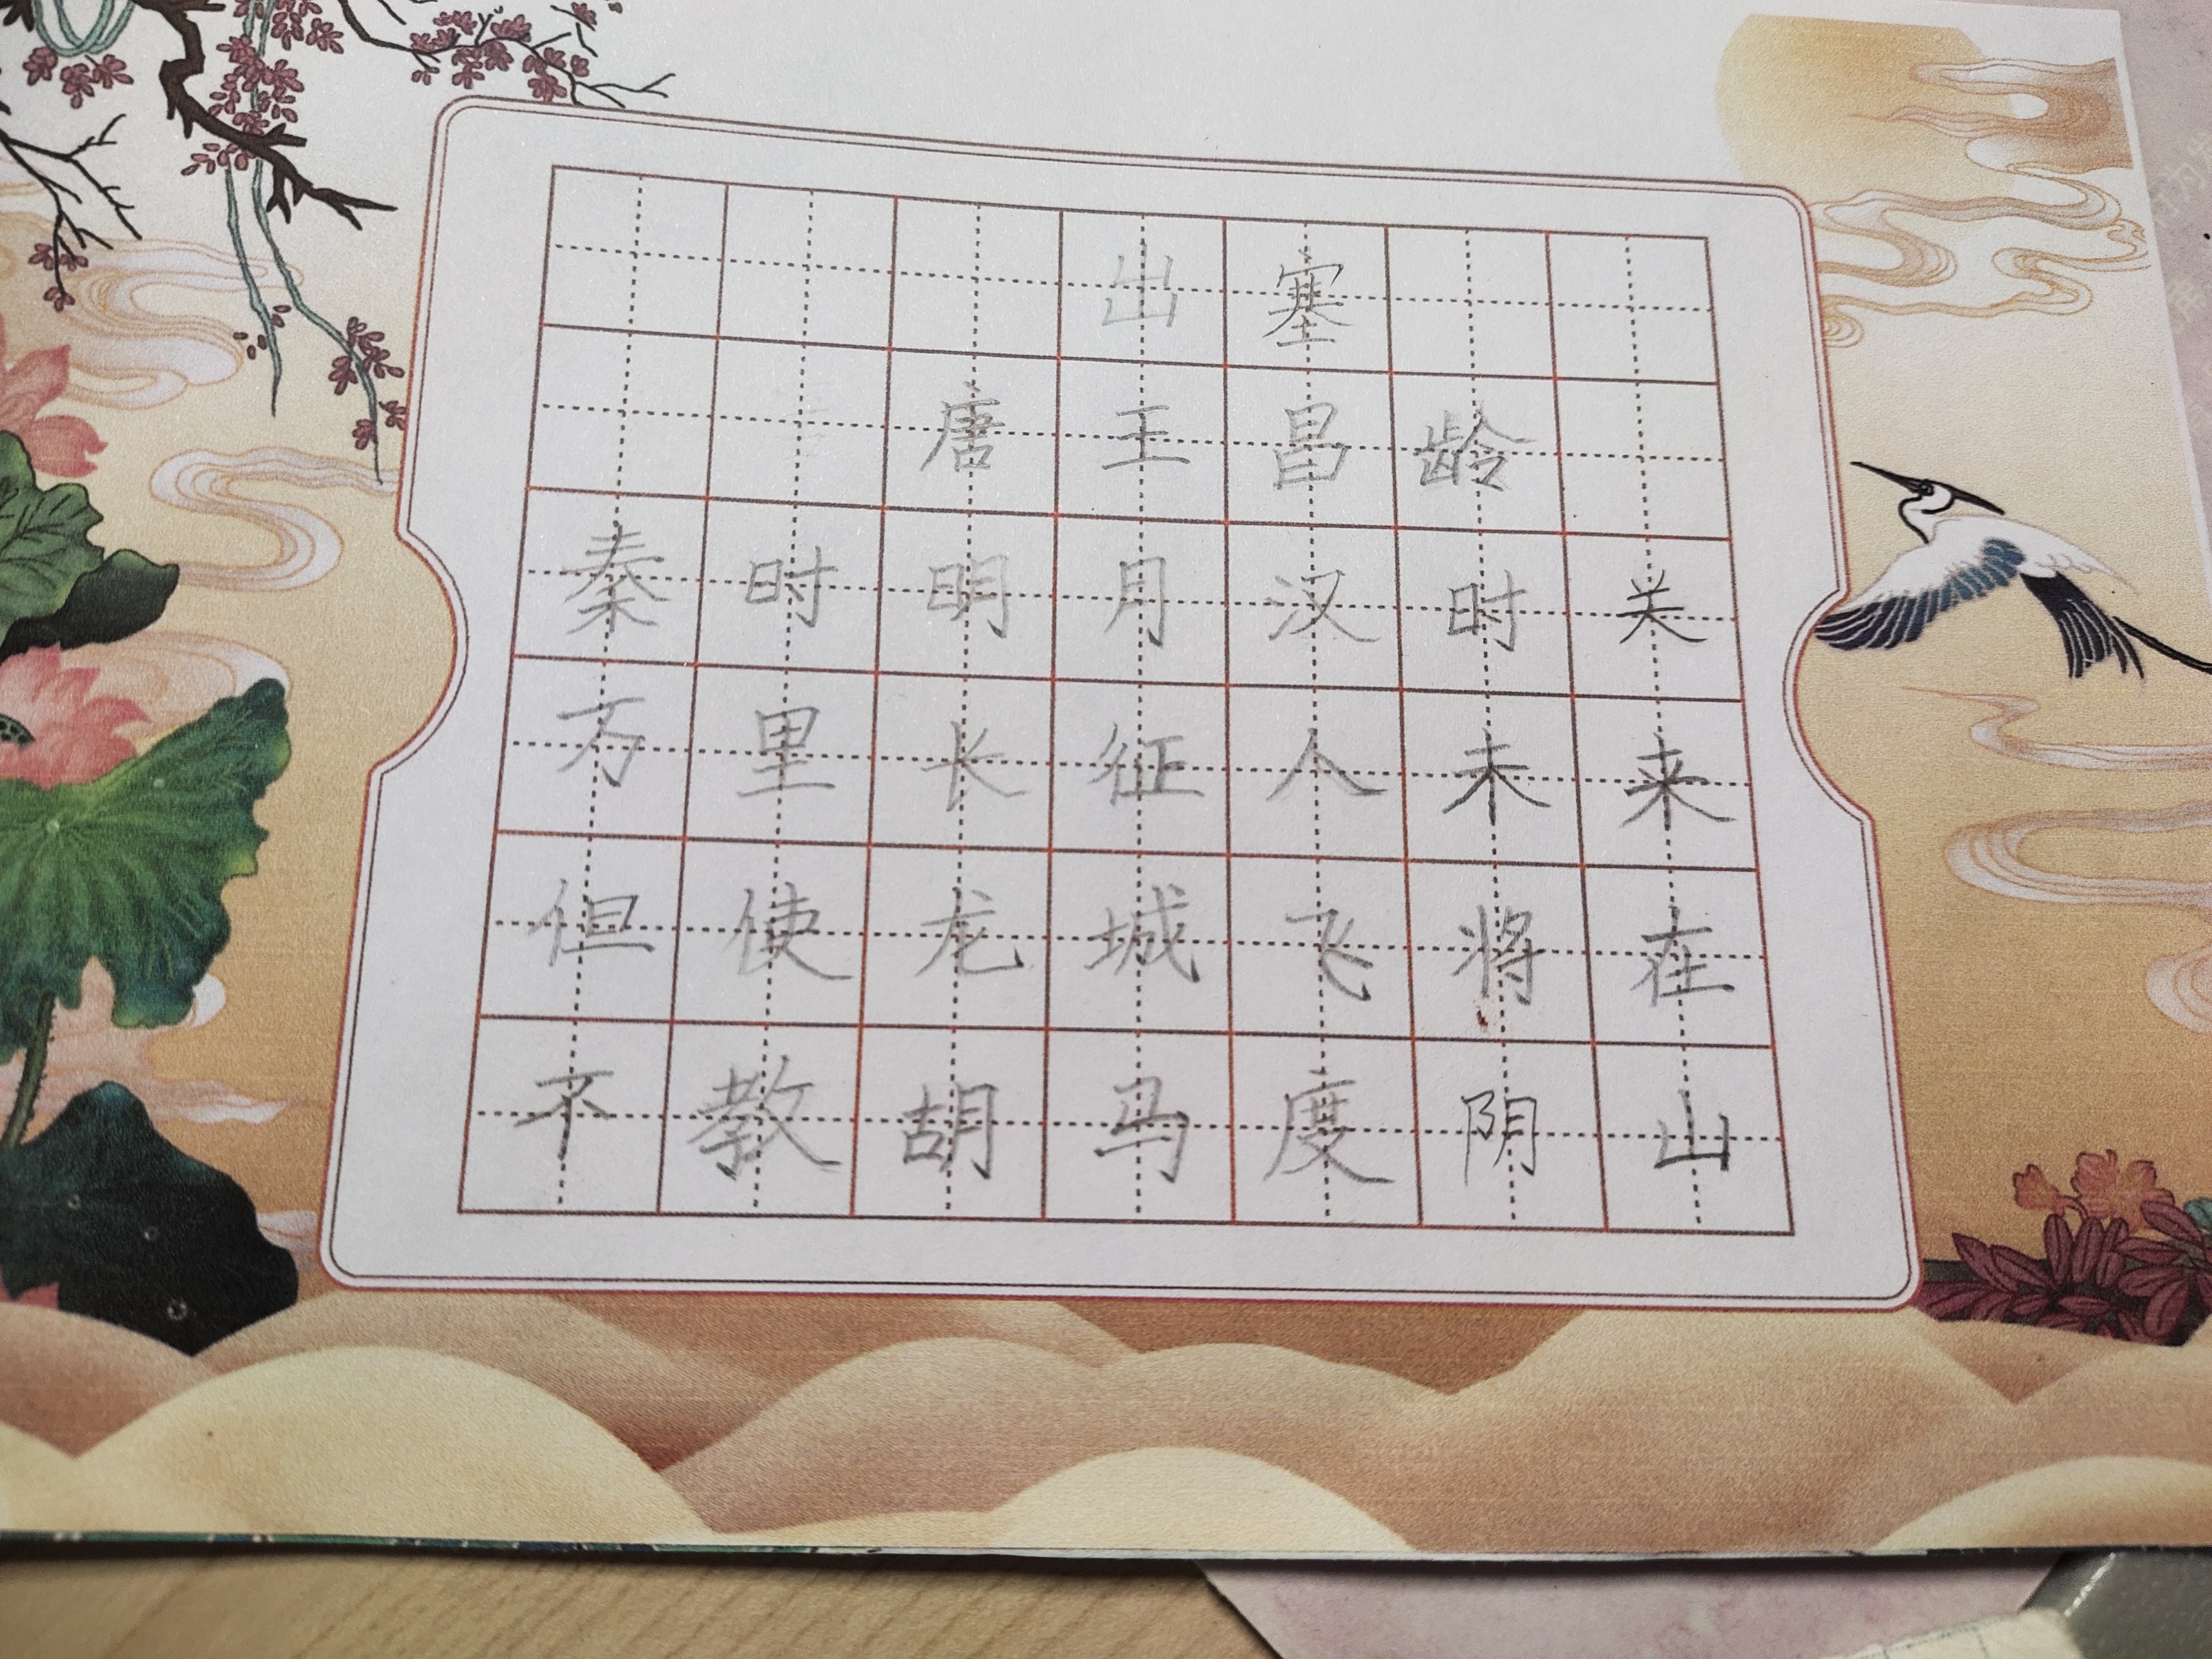 出塞
唐王昌龄
秦时明月汉时关
万里长征人未来
但使龙城飞将在
不教胡马度阴山